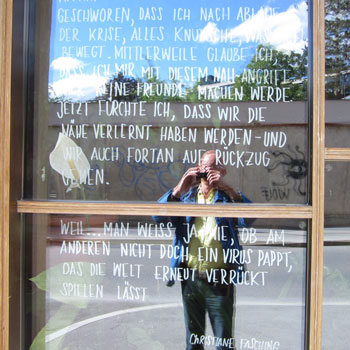 GESCHWOREN, DASS ICH NACH ABLAUF
DER KRISE, ALLES KNUTSCHE, WAS
BEWEGT. MITTLERWEILE GLAUBE ICH,
DASS ICH MIR MIT DIESEM NAH-ANGRIFF
MEINE FREUNDE MACHEN WERDE.
JETZT FÜRCHTE ICH, DASS WIR DIE
NÄHE VERLERNT HABEN WERDEN - UND
WIR AUCH FORTAN AUF RÜCKZUG
GEHEN.
WEIL... MAN WEISS JA NIE, OB AM
ANDEREN NICHT DOCH EIN VIRUS PAPPT,
DAS DIE WELT ERNEUT VERRÜCKT
SPIELEN LÄSST
CHRISTIANE FASCHING